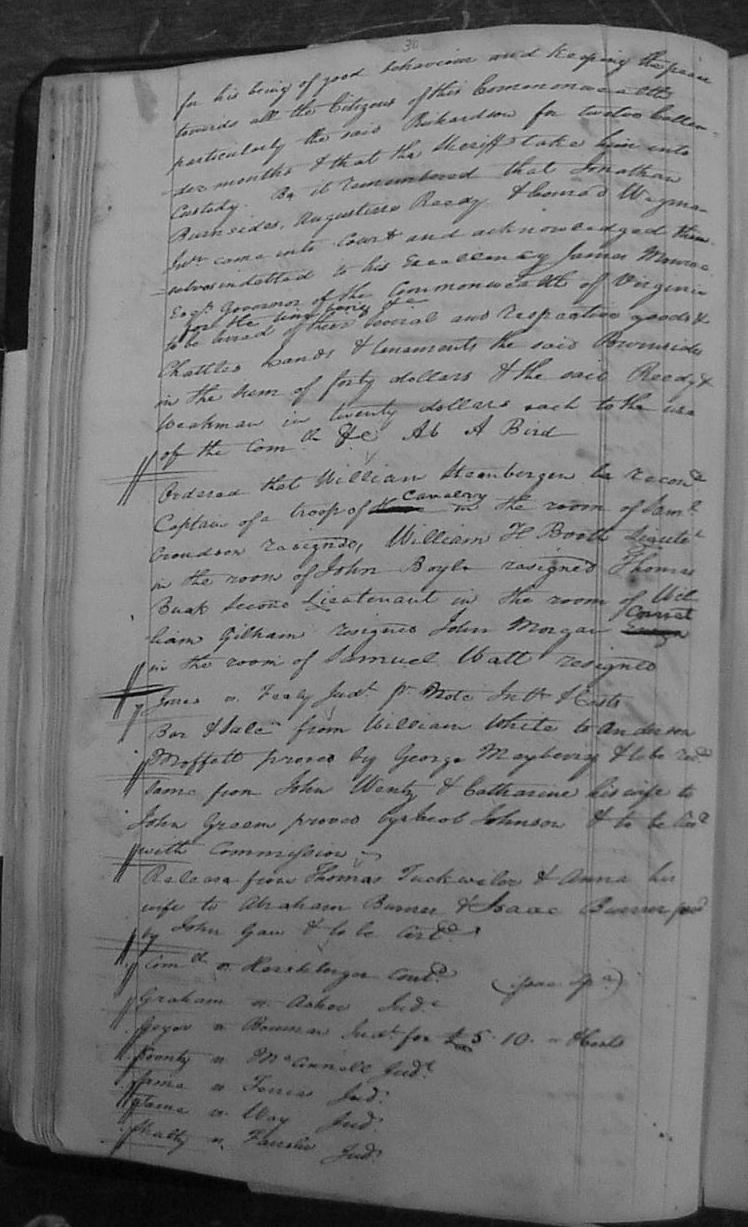 30
for his being of good behaviour and keeping the peace
towards all the Citizens of this Commonwealth
particularly the said Richardson for twelve Callen-
der months & that the Sheriff take him into
Custody. Be it remembered that Jonathan
Burnsides, Augustine Reedy & Conrad
came into Court and acknowledged them-
selves indebted to his Excellency James Monroe
Esqr. Governor of the Commonwealth of Virginia
for the time being &c
to be levied of their several and respective goods &
Chattles Lands & tenements the said Burnsides
in the sum of forty dollars & the said Reedy &
Weakman in twenty dollars each to the use
of the Com th &c Ab A Bird
Ordered that William Steenbergen be recomd
Captain of a troop of Cavalry in the room of Saml
Croudson resigned, William H Booth Lieutet
in the room of John Boyle resigned Thomas
Buck Second Lieutenant in the room of Wil
liam Gilham resigned John Morgan Ensign Cornet
in the room of Samuel Watt resigned
Jones v. Fealy Judt pr Note Intt & Costs
Bar & Sale from William White to Anderson
Moffett proved by George Mayberry & to be recd
Same from John Wentz & Catharine his wife to
John Green proved by Jacob Johnson & to be Cerd
with Commission
Release from Thomas Tuckwiler & Anna his
wife to Abraham Burner & Isaac Burner provd
by John Gaw & to be Certd
Com th v. Hershberger Contd
Graham v. Asher Judt
v. Bowman Judt for £5.10. - & Costs
v. McConnell Judt
Same v. Judt
Same v. Way Judt
v. Judt